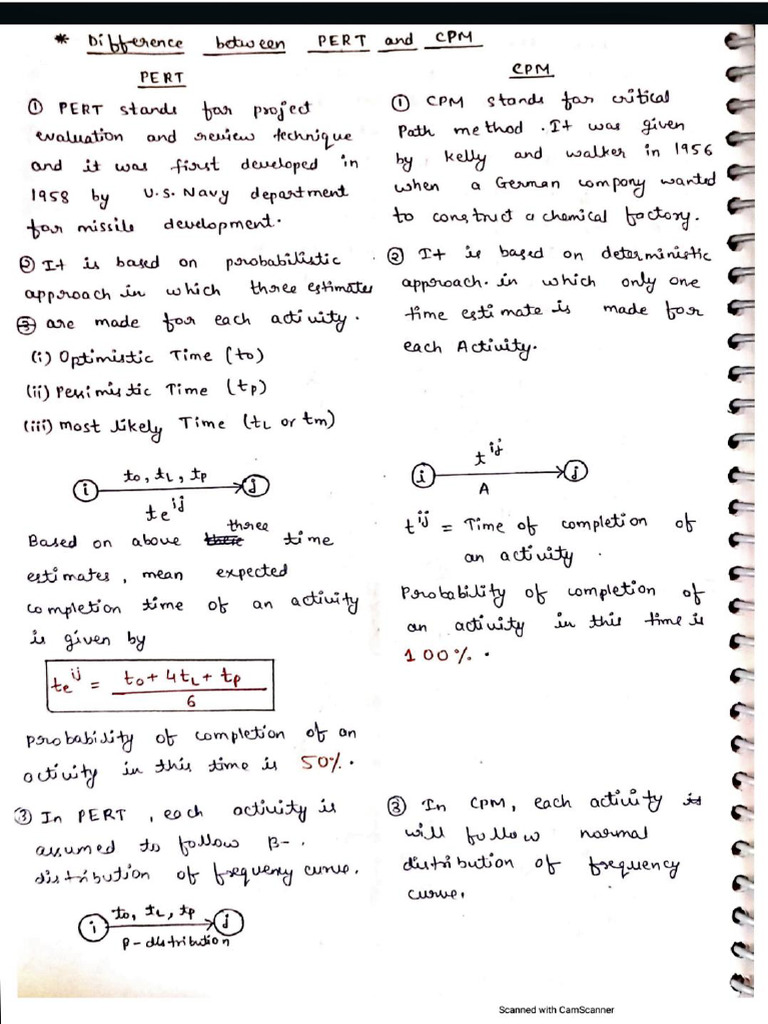 * Difference between PERT and CPM
PERT
① PERT stands for project
evaluation and review technique
and it was first developed in
1958 by U.S. Navy department
for missile development.
② It is based on probabilistic
approach in which three estimates
③ are made for each activity.
(i) Optimistic Time (to)
(ii) Pessimistic Time (tp)
(iii) most likely Time (tL or tm)
to, tL, tp
i j
te^ij
three
Based on above there time
estimates, mean expected
completion time of an activity
is given by
te^ij = to + 4tL + tp / 6
probability of completion of an
activity in this time is 50%.
③ In PERT, each activity is
assumed to follow β-
distribution of frequency curve.
to, tL, tp
i j
β-distribution
CPM
① CPM stands for critical
Path method. It was given
by kelly and walker in 1956
when a German company wanted
to construct a chemical factory.
② It is based on deterministic
approach. in which only one
time estimate is made for
each Activity.
t^ij
i j
A
t^ij = Time of completion of
an activity.
Probability of completion of
an activity in this time is
100%.
③ In CPM, each activity is
will follow normal
distribution of frequency
curve.
Scanned with CamScanner